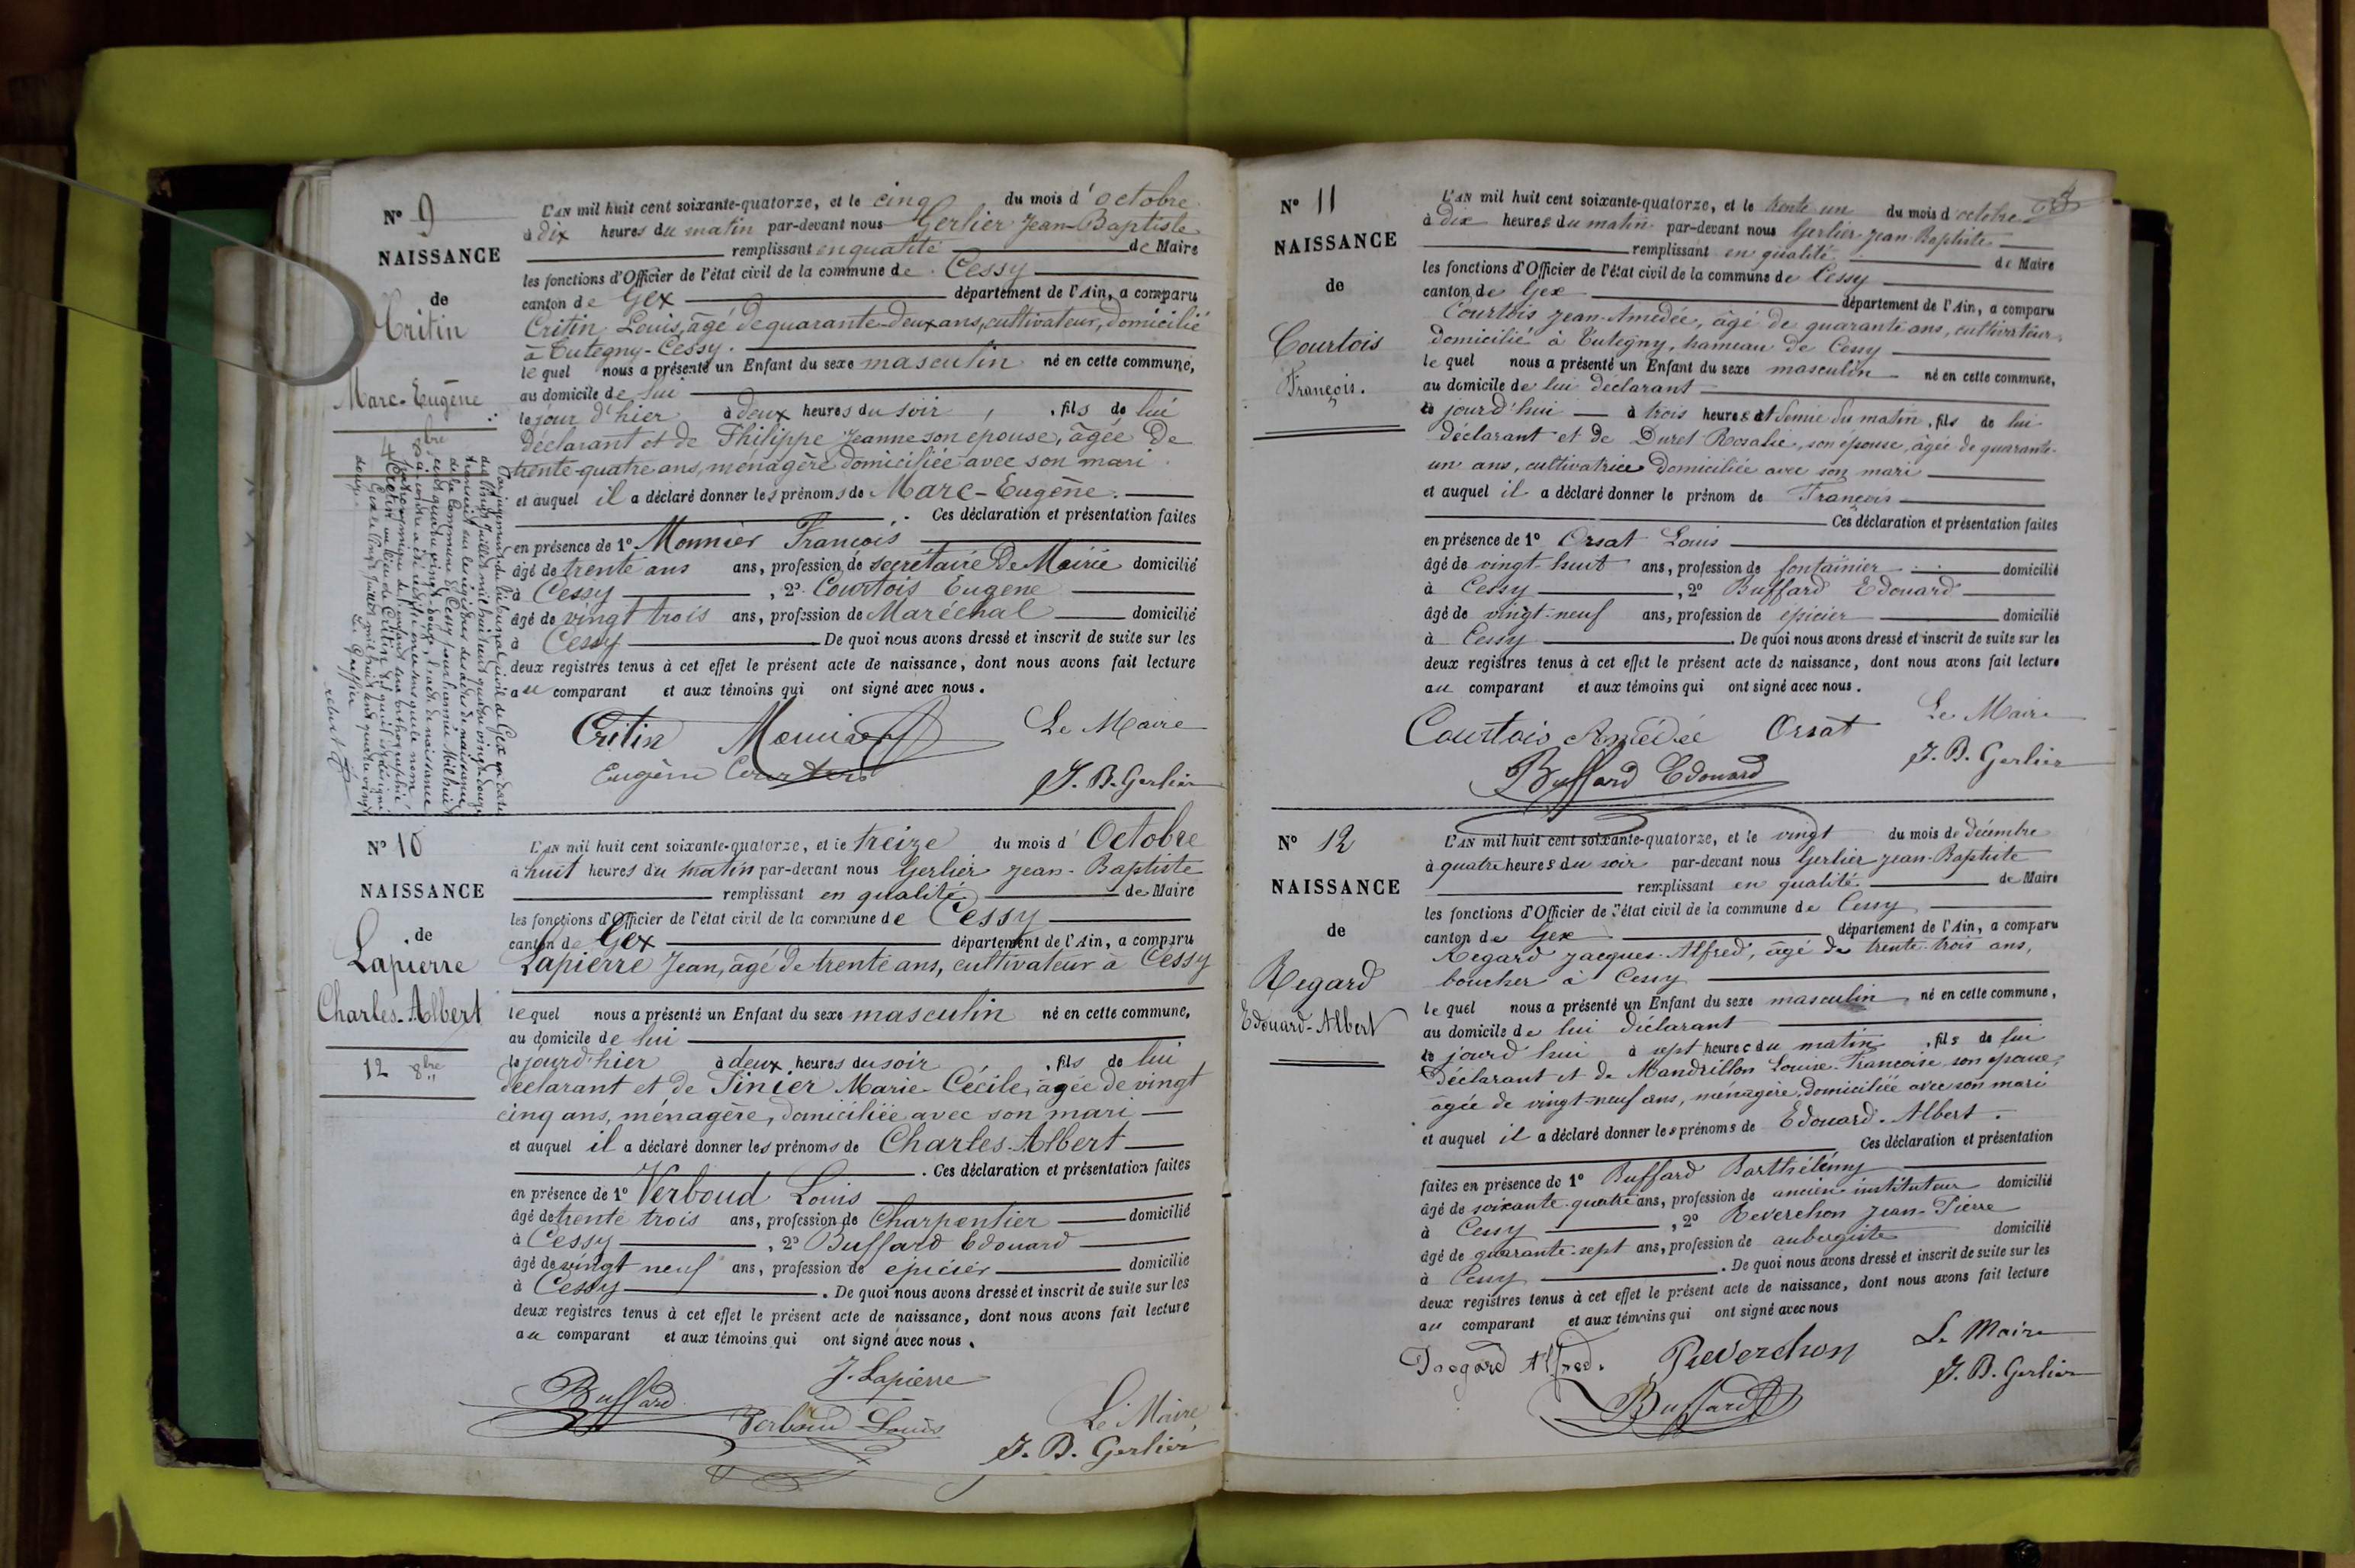 N° 9
NAISSANCE
de
Critin
Marc-Eugène
4 8bre
L'AN mil huit cent soixante-quatorze, et le cinq du mois d'octobre
à dix heures du matin par-devant nous Gerlier Jean-Baptiste
remplissant en qualité de Maire
les fonctions d'Officier de l'état civil de la commune de Cessy
canton de Gex département de l'Ain, a comparu
Critin Louis, âgé de quarante-deux ans, cultivateur, domicilié
à Tutegny-Cessy.
lequel nous a présenté un Enfant du sexe masculin né en cette commune,
au domicile de lui
le jour d'hier à deux heures du soir, fils de lui
déclarant et de Philippe Jeanne son épouse, âgée de
trente-quatre ans, ménagère domiciliée avec son mari.
et auquel il a déclaré donner les prénoms de Marc-Eugène.
Ces déclaration et présentation faites
en présence de 1° Monnier François
âgé de trente ans ans, profession de secrétaire de Mairie domicilié
à Cessy, 2° Courtois Eugène
âgé de vingt trois ans, profession de Maréchal domicilié
à Cessy De quoi nous avons dressé et inscrit de suite sur les
deux registres tenus à cet effet le présent acte de naissance, dont nous avons fait lecture
au comparant et aux témoins qui ont signé avec nous.
Critin Monnier Le Maire
Eugène Courtois J. B. Gerlier
Par jugement du tribunal civil de Gex en date
du vingt juillet mil huit cent quatre vingt-douze
transcrit sur les registres des actes de naissance
de la commune de Cessy pour l'année mil huit
cent quatre vingt-douze, l'acte de naissance
ci-contre a été rectifié en ce sens que le nom
patronymique de l'enfant sera orthographié
Crétin au lieu de Critin
Le Greffier
N° 10
NAISSANCE
de
Lapierre
Charles-Albert
12 8bre
L'AN mil huit cent soixante-quatorze, et le treize du mois d'Octobre
à huit heures du matin par-devant nous Gerlier Jean-Baptiste
remplissant en qualité de Maire
les fonctions d'Officier de l'état civil de la commune de Cessy
canton de Gex département de l'Ain, a comparu
Lapierre Jean, âgé de trente ans, cultivateur à Cessy
lequel nous a présenté un Enfant du sexe masculin né en cette commune,
au domicile de lui
le jour d'hier à deux heures du soir, fils de lui
déclarant et de Pinier Marie-Cécile, agée de vingt
cinq ans, ménagère, domiciliée avec son mari
et auquel il a déclaré donner les prénoms de Charles-Albert
. Ces déclaration et présentation faites
en présence de 1° Verboud Louis
âgé de trente trois ans, profession de Charpentier domicilié
à Cessy, 2° Buffard Edouard
âgé de vingt neuf ans, profession de épicier domicilié
à Cessy. De quoi nous avons dressé et inscrit de suite sur les
deux registres tenus à cet effet le présent acte de naissance, dont nous avons fait lecture
au comparant et aux témoins qui ont signé avec nous.
J. Lapierre
Buffard Verboud Louis Le Maire
J. B. Gerlier
N° 11
NAISSANCE
de
Courtois
François.
L'AN mil huit cent soixante-quatorze, et le trente un du mois d'octobre
à dix heures du matin par-devant nous Gerlier Jean-Baptiste
remplissant en qualité de Maire
les fonctions d'Officier de l'état civil de la commune de Cessy
canton de Gex département de l'Ain, a comparu
Courtois Jean-Amédée, âgé de quarante ans, cultivateur,
domicilié à Tutegny, hameau de Cessy
lequel nous a présenté un Enfant du sexe masculin né en cette commune,
au domicile de lui déclarant
le jourd'hui à trois heures et demie du matin, fils de lui
déclarant et de Duret Rosalie, son épouse, âgée de quarante-
un ans, cultivatrice domiciliée avec son mari
et auquel il a déclaré donner le prénom de François
Ces déclaration et présentation faites
en présence de 1° Orsat Louis
âgé de vingt-huit ans, profession de fontainier domicilié
à Cessy, 2° Buffard Edouard
âgé de vingt-neuf ans, profession de épicier domicilié
à Cessy. De quoi nous avons dressé et inscrit de suite sur les
deux registres tenus à cet effet le présent acte de naissance, dont nous avons fait lecture
au comparant et aux témoins qui ont signé avec nous.
Courtois Amédée Orsat Le Maire
Buffard Edouard J. B. Gerlier
N° 12
NAISSANCE
de
Regard
Edouard-Albert
L'AN mil huit cent soixante-quatorze, et le vingt du mois de décembre
à quatre heures du soir par-devant nous Gerlier Jean-Baptiste
remplissant en qualité de Maire
les fonctions d'Officier de l'état civil de la commune de Cessy
canton de Gex département de l'Ain, a comparu
Regard Jacques-Alfred, âgé de trente-trois ans,
boucher à Cessy
lequel nous a présenté un Enfant du sexe masculin, né en cette commune,
au domicile de lui déclarant
le jourd'hui à sept heures du matin, fils de lui
déclarant et de Mandrillon Louise-Françoise son épouse,
âgée de vingt-neuf ans, ménagère, domiciliée avec son mari
et auquel il a déclaré donner les prénoms de Edouard-Albert.
Ces déclaration et présentation
faites en présence de 1° Buffard Barthélémy
âgé de soixante-quatre ans, profession de ancien instituteur domicilié
à Cessy, 2° Reverchon Jean-Pierre
âgé de quarante-sept ans, profession de aubergiste domicilié
à Cessy. De quoi nous avons dressé et inscrit de suite sur les
deux registres tenus à cet effet le présent acte de naissance, dont nous avons fait lecture
au comparant et aux témoins qui ont signé avec nous
Regard Alfred. Reverchon Le Maire
Buffard J. B. Gerlier